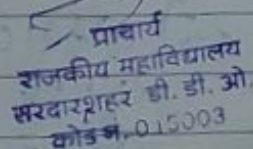 प्राचार्य
राजकीय महाविद्यालय
सरदारशहर डी. डी. ओ.
कोड नं. 015003